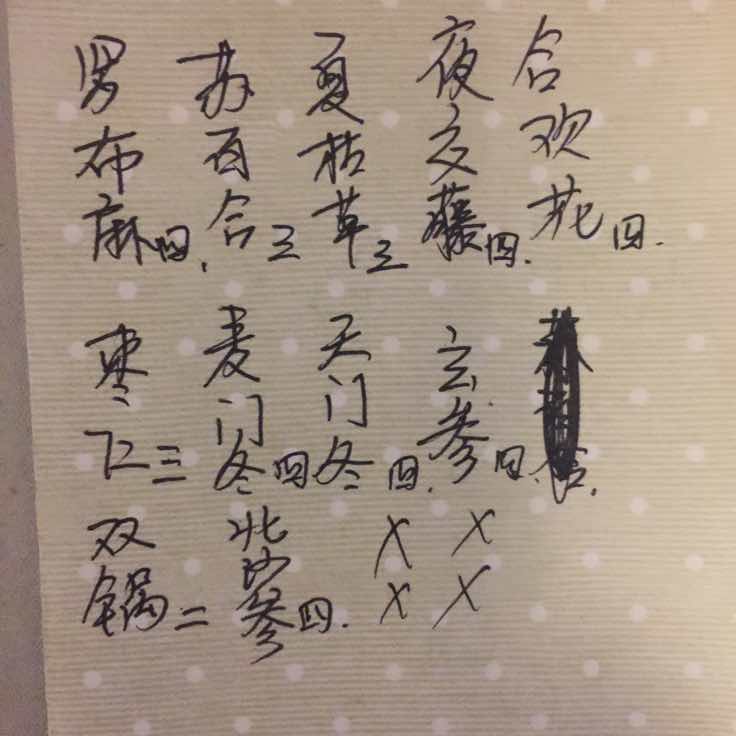 男布麻四.
苏百合三
夏枯草三
夜交藤四.
合欢花四.
枣仁三
麦门冬四
天门冬四.
玄参四.
双锅二
北沙参四.
X X
X X